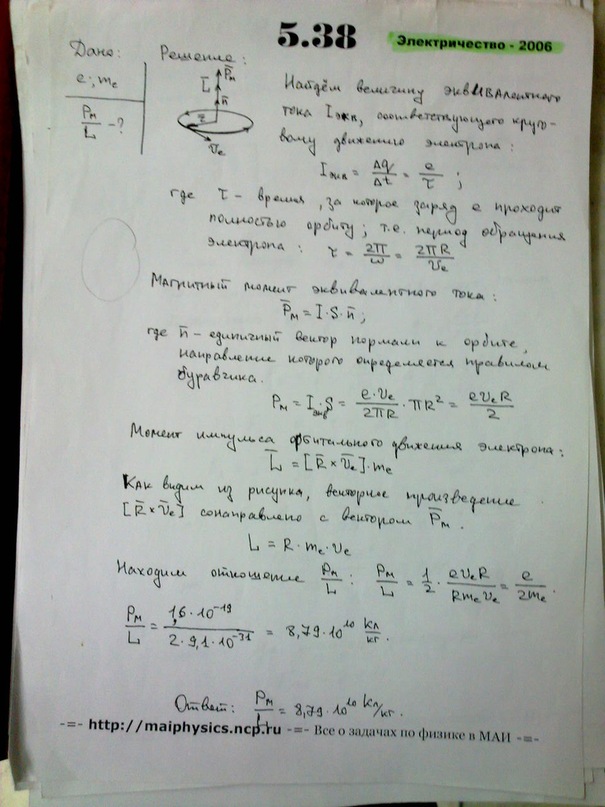 5.38
Электричество - 2006
Дано:
e; mₑ
Pₘ/L - ?
Решение:
P̄ₘ
L̄
n̄
v̄ₑ
Найдём величину эквивалентного
тока Iэкв, соответствующего круго-
вому движению электрона:
Iэкв = Δq/Δt = e/τ ;
где τ - время, за которое заряд e проходит
полностью орбиту; т.е. период обращения
электрона: τ = 2π/ω = 2πR/vₑ
Магнитный момент эквивалентного тока:
P̄ₘ = I·S·n̄;
где n̄ - единичный вектор нормали к орбите,
направление которого определяется правилом
буравчика.
Pₘ = Iэкв·S = e·vₑ/2πR · πR² = evₑR/2
Момент импульса орбитального движения электрона:
L̄ = [R̄ × v̄ₑ]·mₑ
Как видим из рисунка, векторное произведение
[R̄ × v̄ₑ] сонаправлено с вектором P̄ₘ.
L = R·mₑ·vₑ
Находим отношение Pₘ/L : Pₘ/L = 1/2 · evₑR/Rmₑvₑ = e/2mₑ.
Pₘ/L = 1,6·10⁻¹⁹/2·9,1·10⁻³¹ = 8,79·10¹⁰ Кл/кг.
Ответ: Pₘ/L = 8,79·10¹⁰ Кл/кг.
-=- http://maiphysics.ncp.ru -=- Все о задачах по физике в МАИ -=-